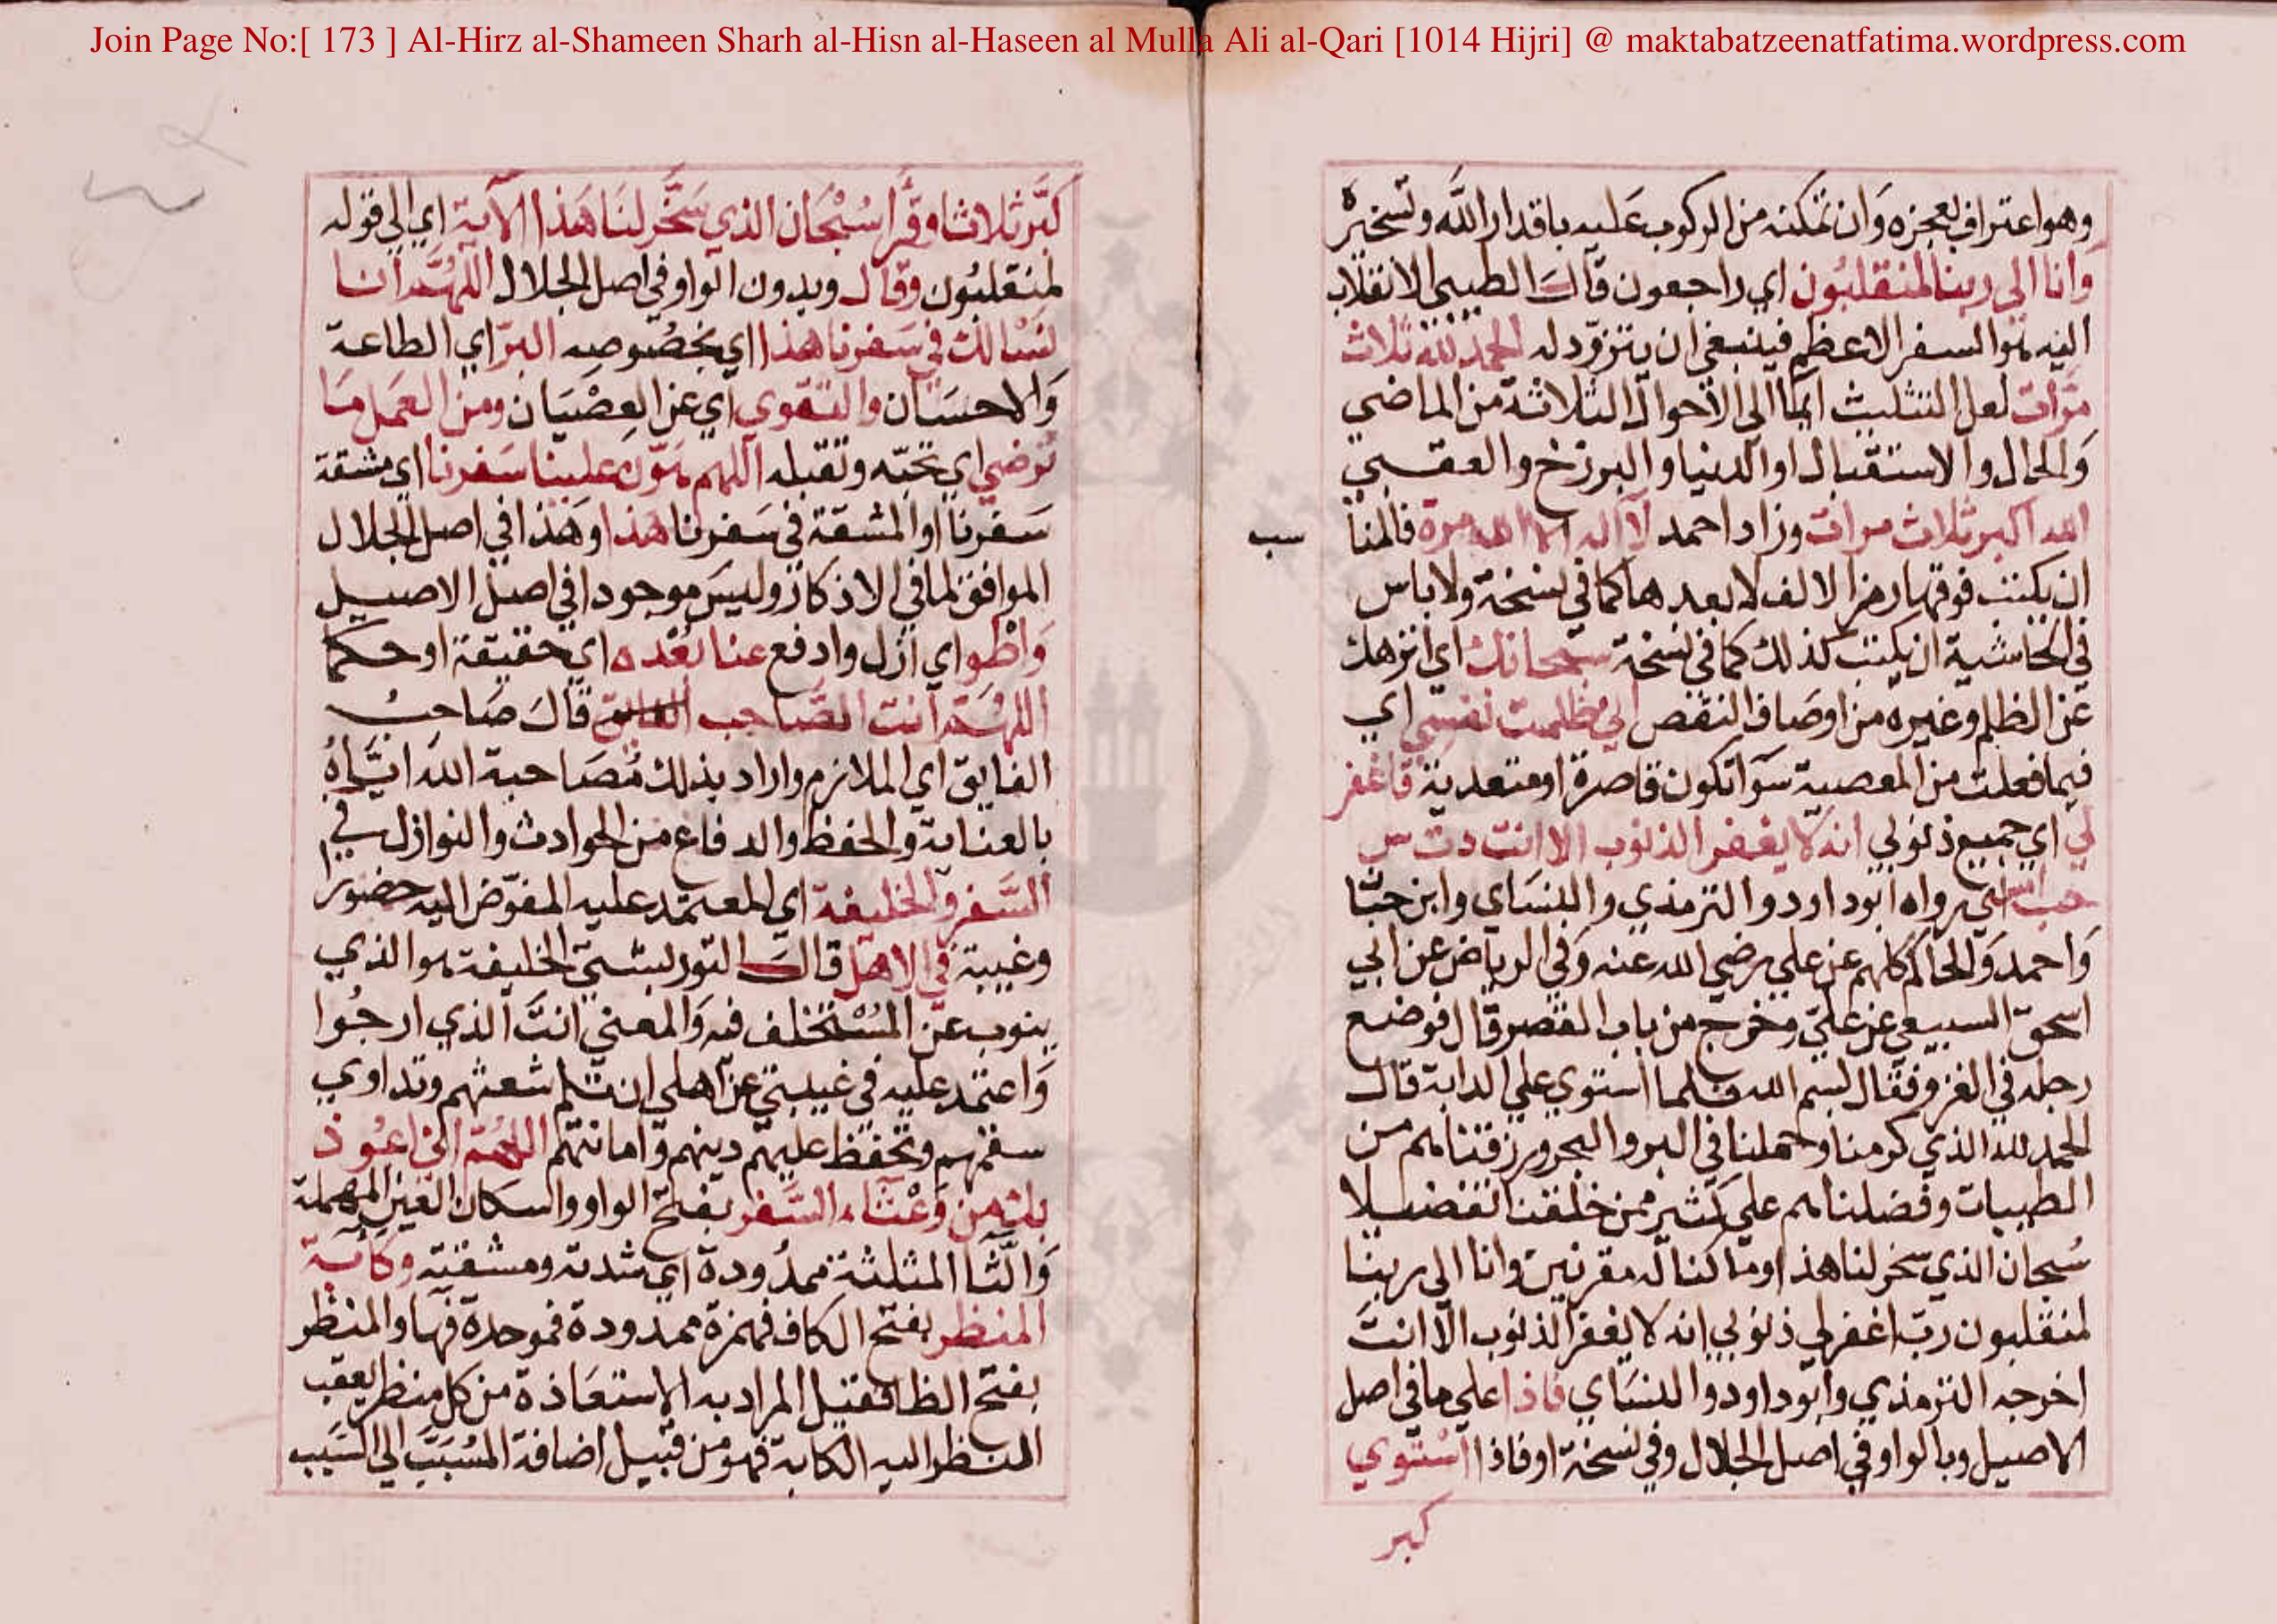 Join Page No:[ 173 ] Al-Hirz al-Shameen Sharh al-Hisn al-Haseen al Mulla Ali al-Qari [1014 Hijri] @ maktabatzeenatfatima.wordpress.com
وهو اعتراف بعجزه وان تمكنه من الركوب عليه باقدار الله وتسخيره
وانا الى ربنا لمنقلبون اي راجعون قال الطيبي الانقلاب
اليه هو السفر الاعظم فينبغي ان يتزود له الحمد لله ثلاث
مرات لعل التثليث ايما الي الاحوال الثلاثة من الماضي
والحال والاستقبال او الدنيا والبرزخ والعقبي
الله اكبر ثلاث مرات وزاد احمد لا اله الا الله مرة فالمنا
سب
ان يكتب فوقها رمز الالف لا بعدها كما في نسخة ولا باس
في الحاشية ان يكتب كذلك كما في نسخة سبحانك اي انزهك
عن الظلم وغيره من اوصاف النقص اني ظلمت نفسي اي
فيما فعلت من المعصية سوآ تكون قاصرة او متعدية فاغفر
لي اي جميع ذنوبي انه لا يغفر الذنوب الا انت دت س
حب امس اي رواه ابو داود والترمذي والنساي وابن حبا
واحمد والحاكم كلهم عن علي رضي الله عنه وفي الرياض عن ابي
اسحق السبيعي عن علي وخرج من باب القصر قال فوضع
رجله في الغرز فقال بسم الله فلما استوي علي الدابة قال
الحمد لله الذي كرمنا وحملنا في البر والبحر ورزقنا هم من
الطيبات وفضلنا هم علي كثير ممن خلقنا تفضيلا
سبحان الذي سخر لنا هذا وما كنا له مقرنين وانا الى ربنا
لمنقلبون رب اغفر لي ذنوبي انه لا يغفر الذنوب الا انت
اخرجه الترمذي وابو داود والنساي فاذا علي ما في اصل
الاصيل وبالواو في اصل الجلال وفي نسخة او فاذا استوي
كبر
كبر ثلاثا وقرأ سبحان الذي سخر لنا هذا الآية اي الي قوله
لمنقلبون وقال وبدون الواو في اصل الجلال اللهم انا
نسالك في سفرنا هذا اي بخصوصه البر اي الطاعة
والاحسان والتقوي اي عن العصيان ومن العمل ما
ترضي اي تحبه وتقبله اللهم هون علينا سفرنا اي مشقة
سفرنا او المشقة في سفرنا هذا وهذا في اصل الجلال
الموافق لما في الاذكار وليس موجودا في اصل الاصيل
واطو اي ازل وادفع عنا بعده اي حقيقة او حكما
اللهم انت الصاحب قال صاحب
الفايق اي الملازم واراد بذلك مصاحبة الله اياه
بالعناية والحفظ والدفاع من الحوادث والنوازل في
السفر والخليفة اي المعتمد عليه المفوض اليه حضورا
وغيبة في الاهل قال التوربشتي الخليفة هو الذي
ينوب عن المستخلف فيه والمعني انت الذي ارجوا
واعتمد عليه في غيبتي عن اهلي ان تلم شعثهم وتداوي
سقمهم وتحفظ عليهم دينهم وامانتهم اللهم اني اعوذ
بك من وعثاء السفر بفتح الواو واسكان العين المهملة
والثا المثلثة ممدودة اي شدته ومشقته وكآبة
المنظر بفتح الكاف فهمزة ممدودة فموحدة فها والمنظر
بفتح الظا فقيل المراد به الاستعاذة من كل منظر يعقب
النظر اليه الكابة فهو من قبيل اضافة المسبب الي السبب